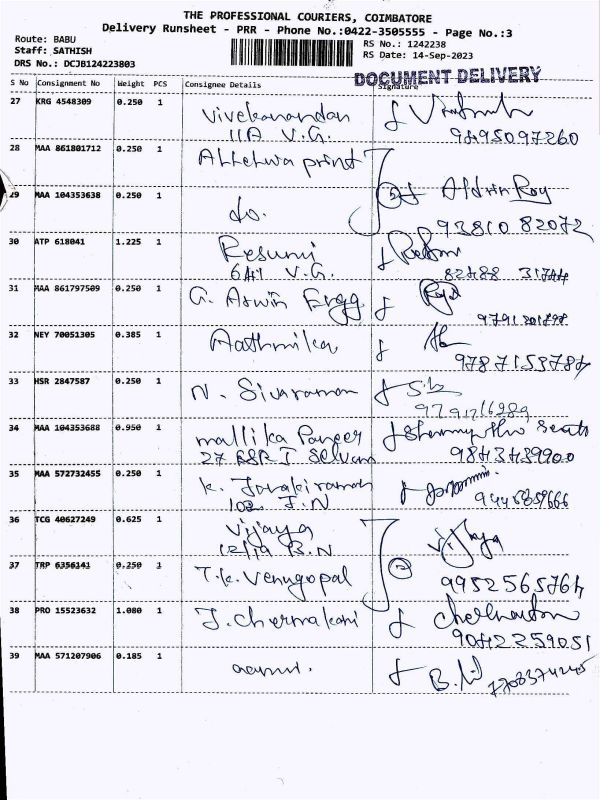 THE PROFESSIONAL COURIERS, COIMBATORE
Delivery Runsheet - PRR - Phone No.:0422-3505555 - Page No.:3
Route: BABU
Staff: SATHISH
DRS No.: DCJB124223803
RS No.: 1242238
RS Date: 14-Sep-2023
DOCUMENT DELIVERY
S No Consignment No Weight PCS Consignee Details Signature
27 KRG 4548309 0.250 1 Vivekanandan
11A V.G. 9895097260
28 MAA 861801712 0.250 1 print
29 MAA 104353638 0.250 1 do. Aldrin Roy
93810 82072
30 ATP 618041 1.225 1 Resumi
641 V.G.
31 MAA 861797509 0.250 1 G. Aswin Engg.
32 NEY 70051305 0.385 1 Aathmika
9787153784
33 HSR 2847587 0.250 1 N. Sivaraman
34 MAA 104353688 0.950 1 mallika
27 Selvam 9843439900
35 MAA 572732455 0.250 1 K. Janakiraman
102 J.N
36 TCG 40627249 0.625 1 Vijaya Vijaya
12/19 B.N
37 TRP 6356141 0.250 1 T.K. Venugopal 9952565764
38 PRO 15523632 1.080 1 J. Chermakani
9042259051
39 MAA 571207906 0.185 1